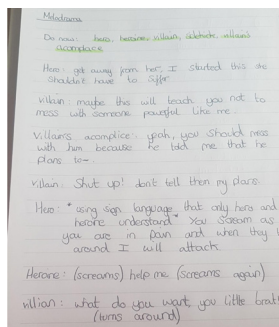 Melodrama
Do now: hero, heroine, villain, sidekick, villain's
acomplace
Hero: get away from her, I started this she
shouldn't have to suffer
villain: maybe this will teach you not to
mess with someone powerful like me.
Villain's acomplice: yeah, you should mess
with him because he told me that he
plans to-
villain: Shut up! don't tell them my plans.
Hero: "using sign language that only hero and
heroine understand" You scream as
you are in pain and when they t
around I will attack.
Herone: (screams) help me (screams again)
villian: what do you want, you little brat
(turns around)